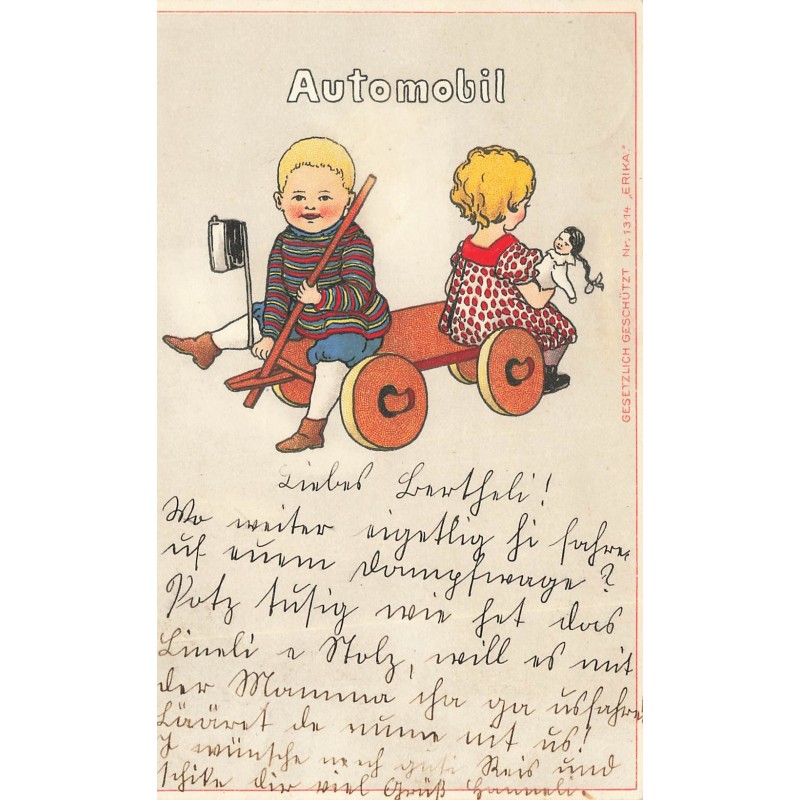 Automobil
GESETZLICH GESCHÜTZT Nr. 1314 „ERIKA."
Liebes Bertheli!
Wo weiter eigetlig hi fahre
uf euem Dampfwage?
Potz tusig wie het das
Lineli e Stolz, will es mit
der Mamma cha ga usfahre!
Lääret de nume nit us!
I wünsche nech guti Reis und
schike dir viel Grüß Hanneli.